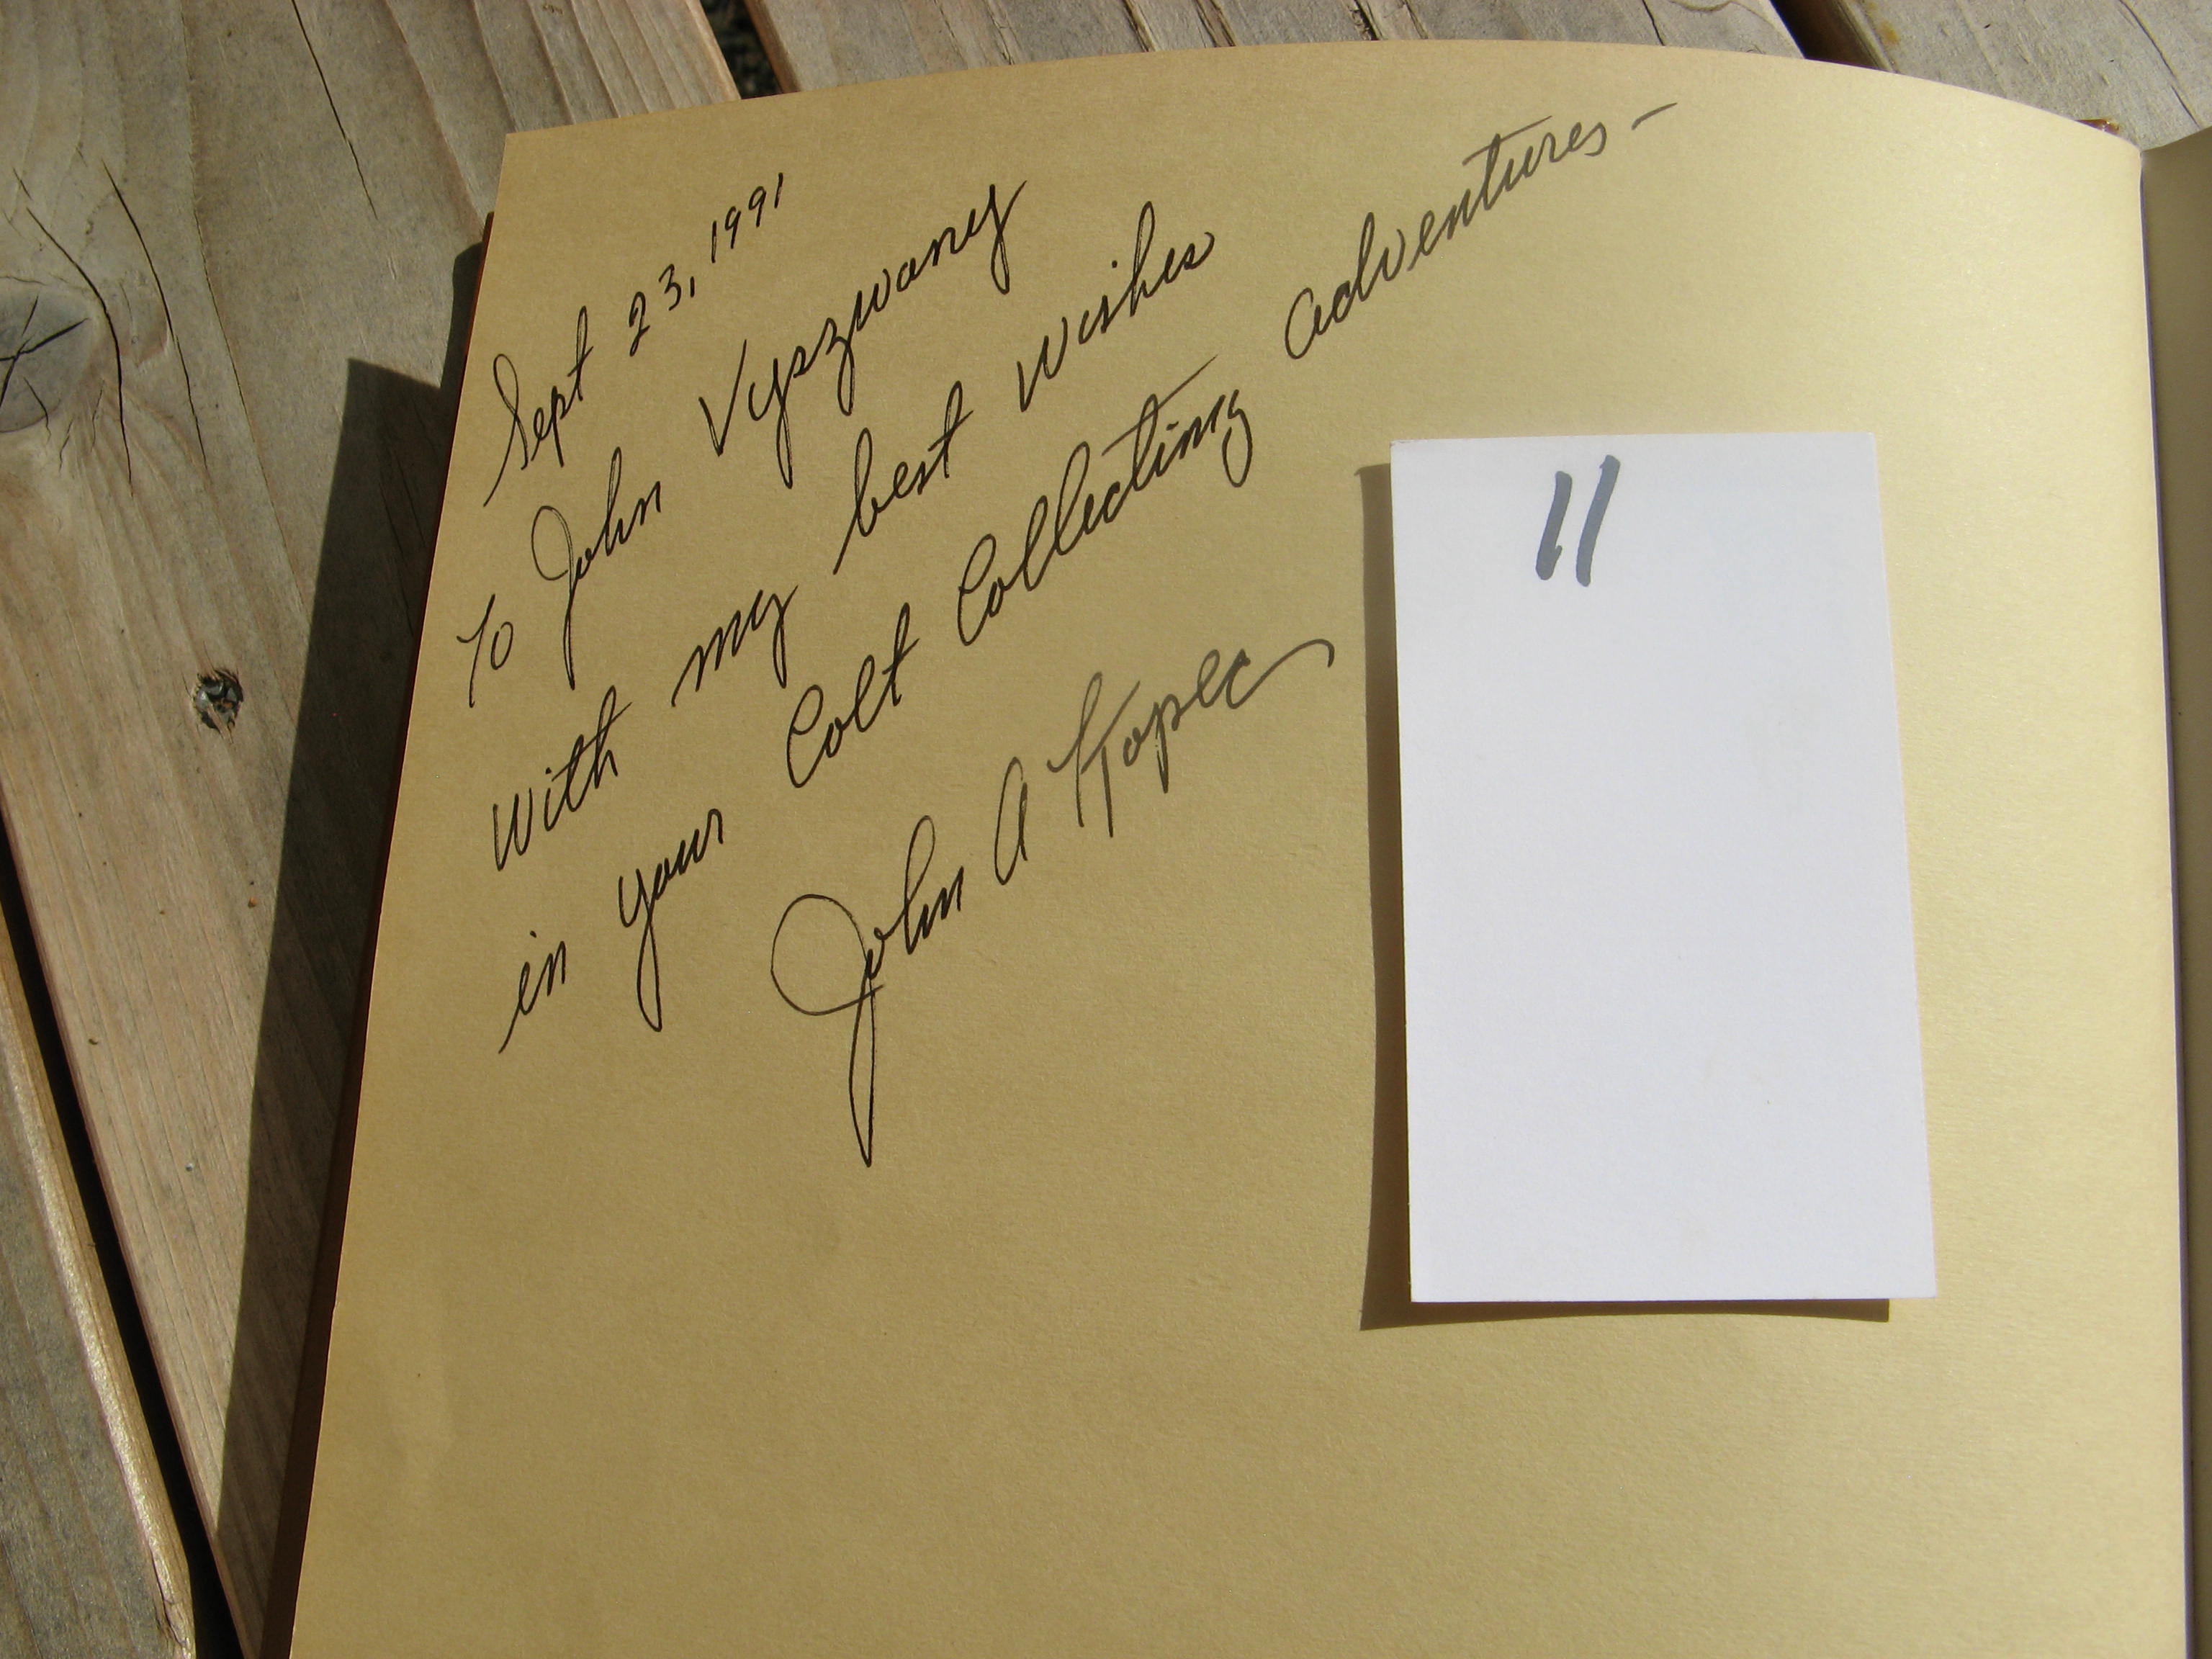 Sept 23, 1991
To John Vyszwany
With my best wishes
in your Colt Collecting adventures -
John A Kopec
11